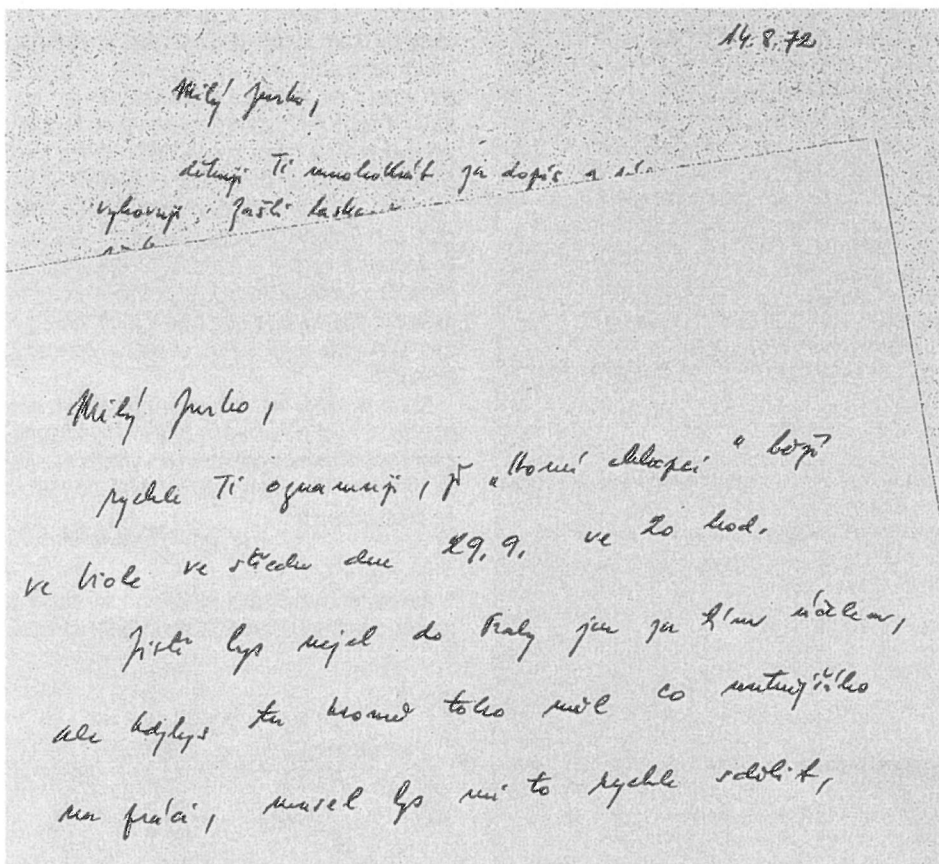 14.8.72
Milý Jurko,
děkuji Ti mnohokrát za dopis a
vyhovuji. Zašli
Milý Jurko,
rychle Ti oznamuji, že "    chlapci" běží
ve Viole ve středu dne 29.9. ve 20 hod.
Jistě bys nejel do Prahy jen za tím účelem,
ale kdybys tu kromě toho měl co nutnějšího
na práci, musel bys mi to rychle sdělit,